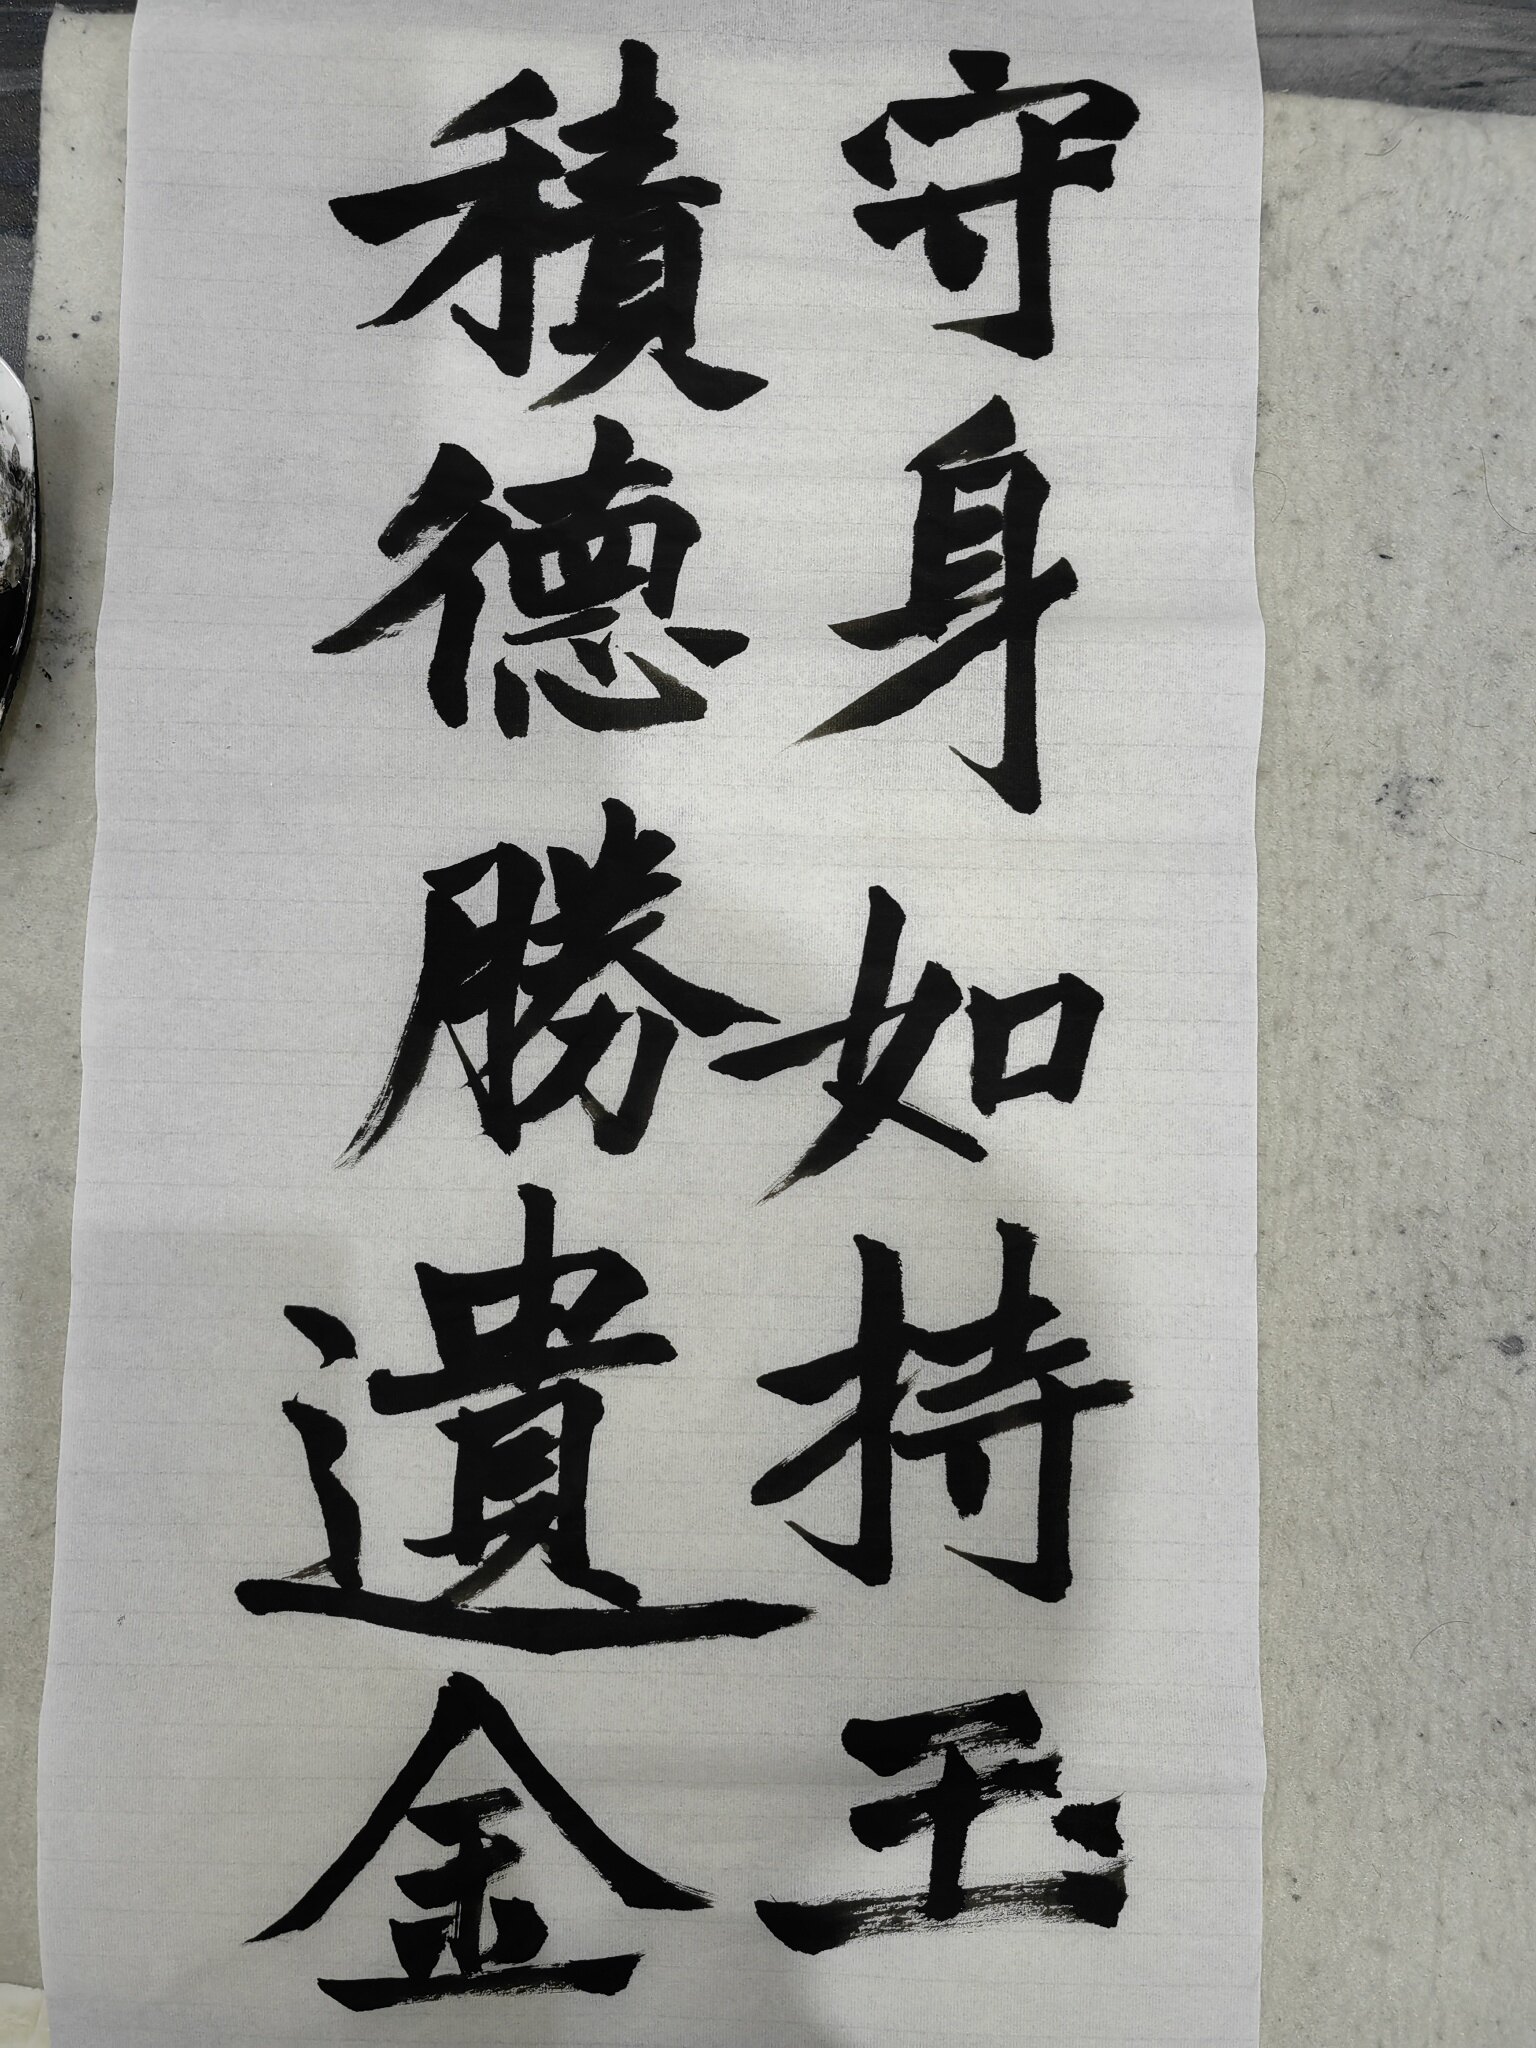 守身如持玉
積德勝遺金